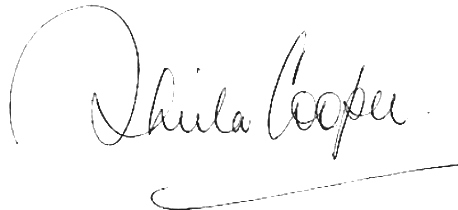 Sheila Cooper.